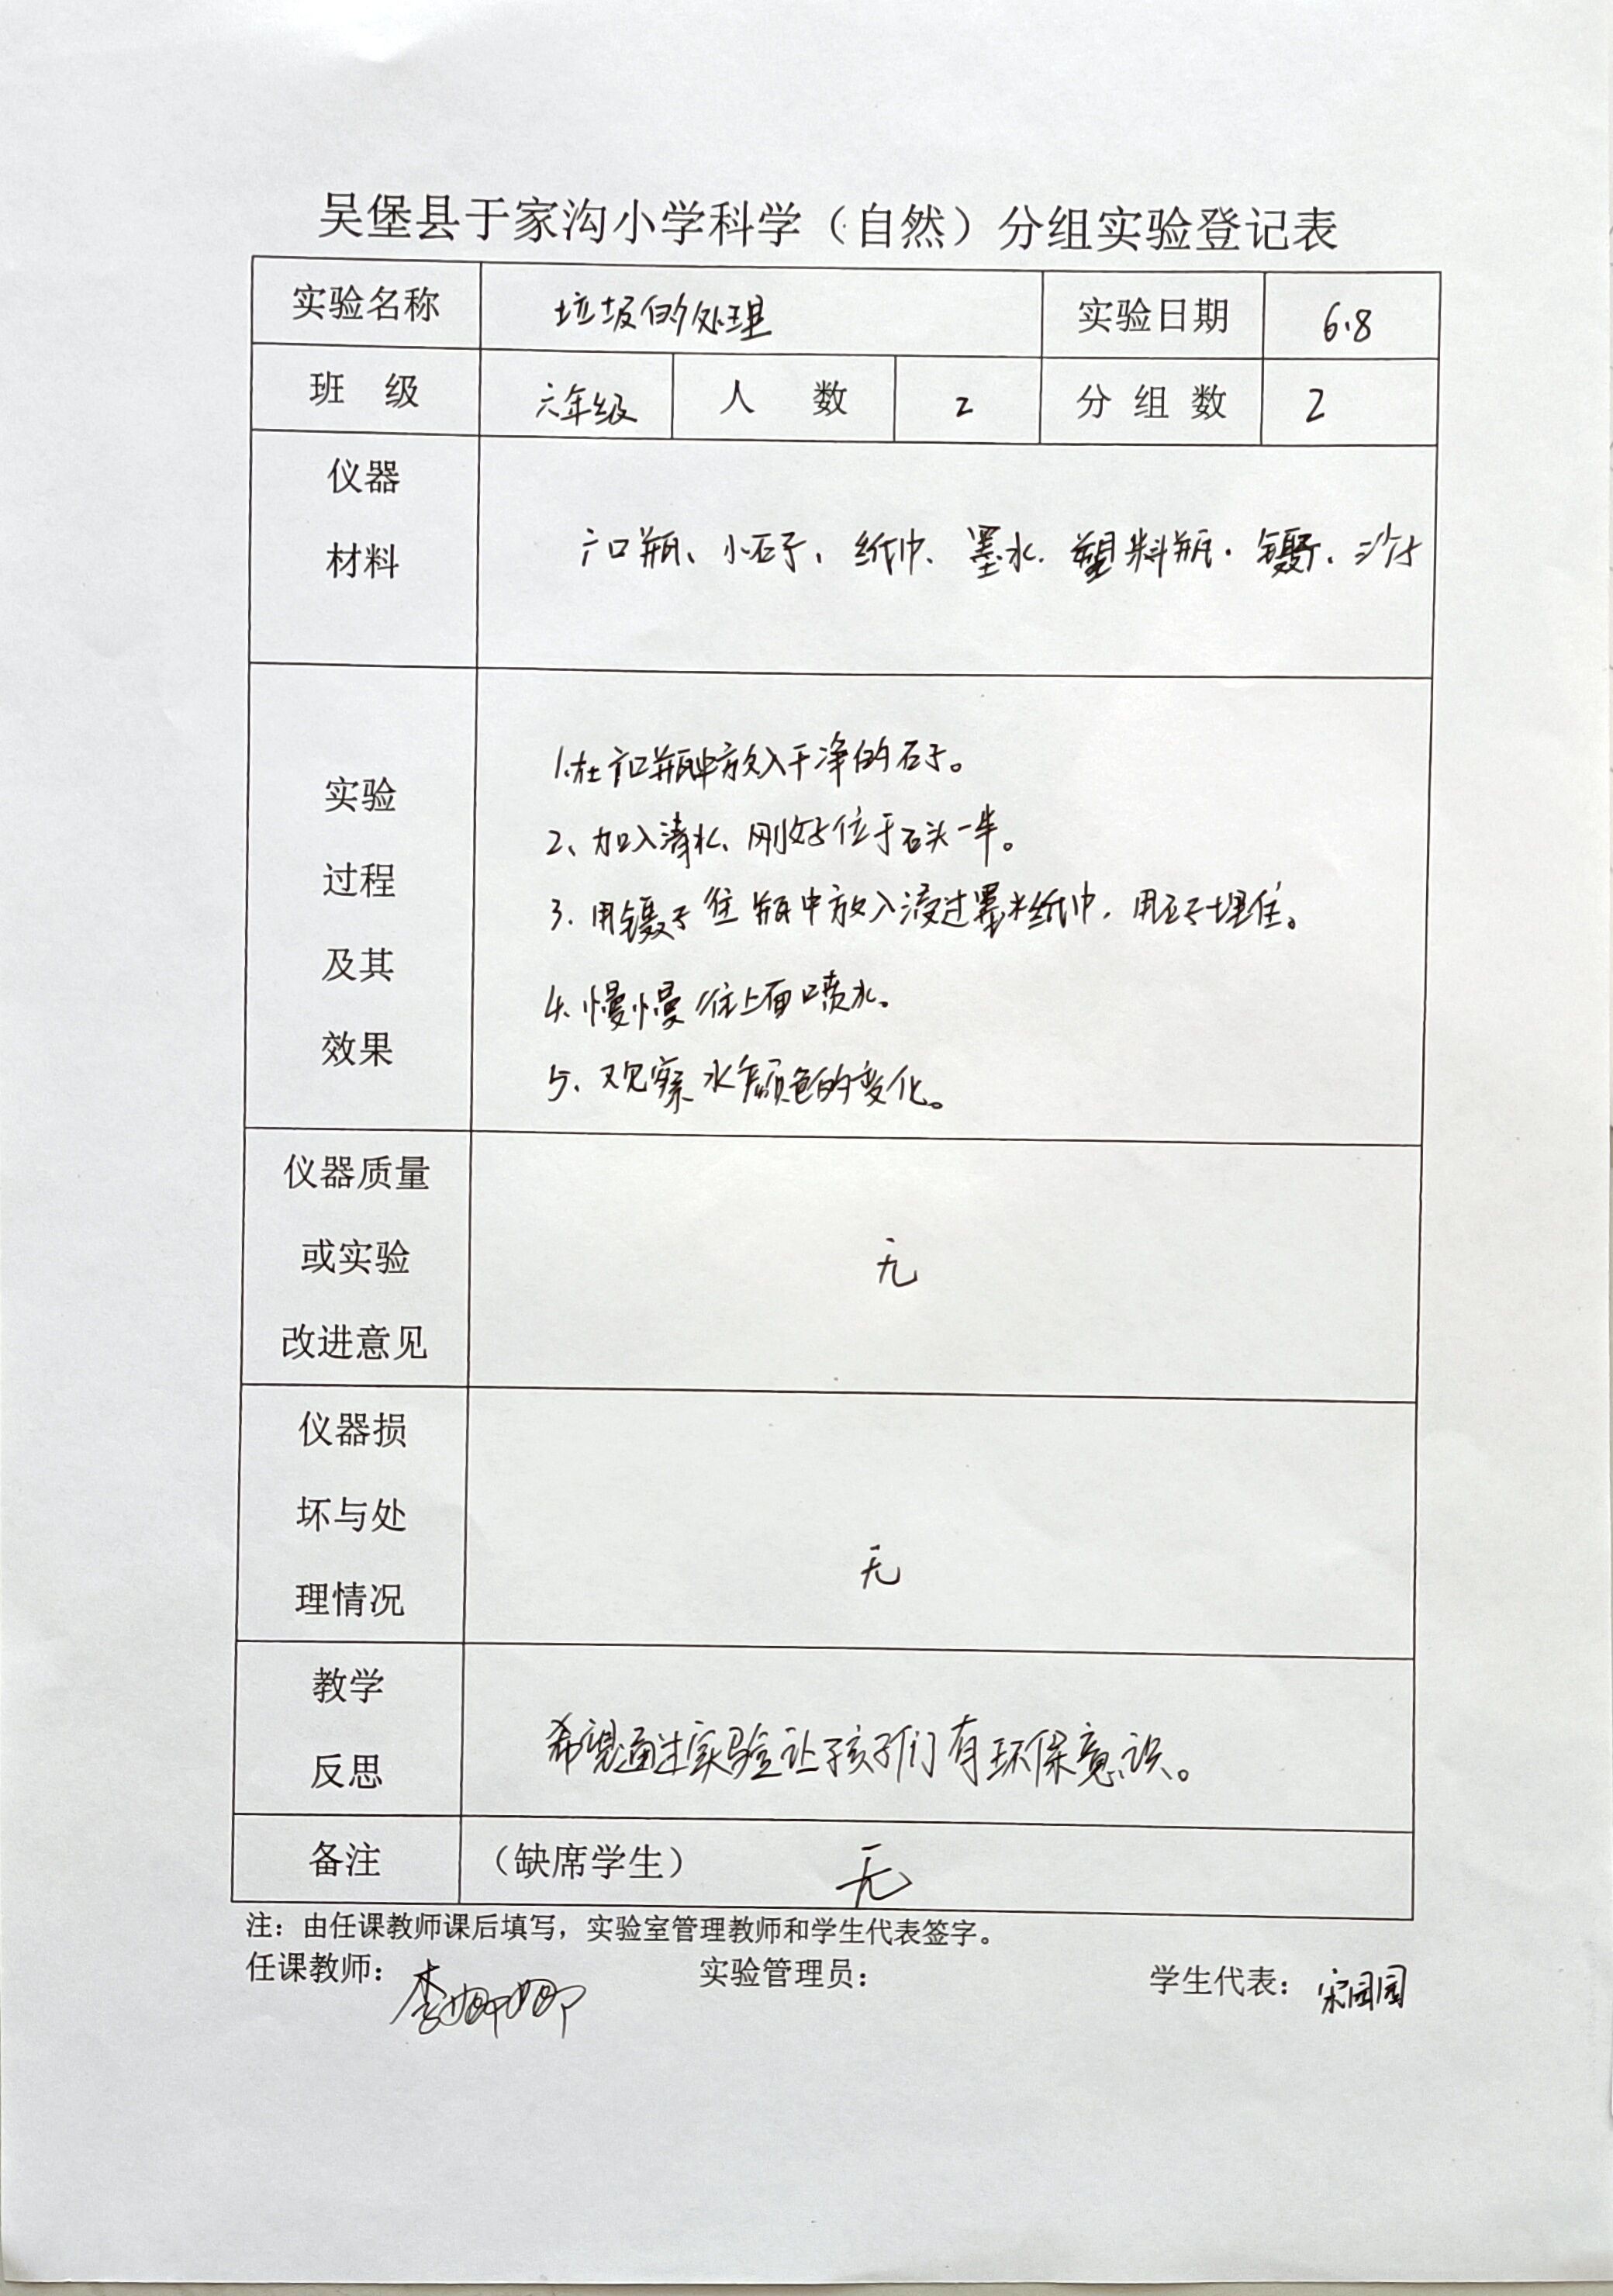 吴堡县于家沟小学科学（自然）分组实验登记表
实验名称 垃圾的处理 实验日期 6.8
班 级 六年级 人 数 2 分 组 数 2
仪器
材料
广口瓶、小石子、纸巾、墨水、塑料瓶、镊子、
实验
过程
及其
效果
1.在广口瓶中放入干净的石子。
2、加入清水、刚好位于石头一半。
3.用镊子往瓶中放入浸过墨水纸巾，用石子埋住。
4.慢慢往上面喷水。
5、观察水颜色的变化。
仪器质量
或实验
改进意见
无
仪器损
坏与处
理情况
无
教学
反思
希望通过实验让孩子们有环保意识。
备注 （缺席学生） 无
注：由任课教师课后填写，实验室管理教师和学生代表签字。
任课教师：李娜娜 实验管理员： 学生代表：宋园园